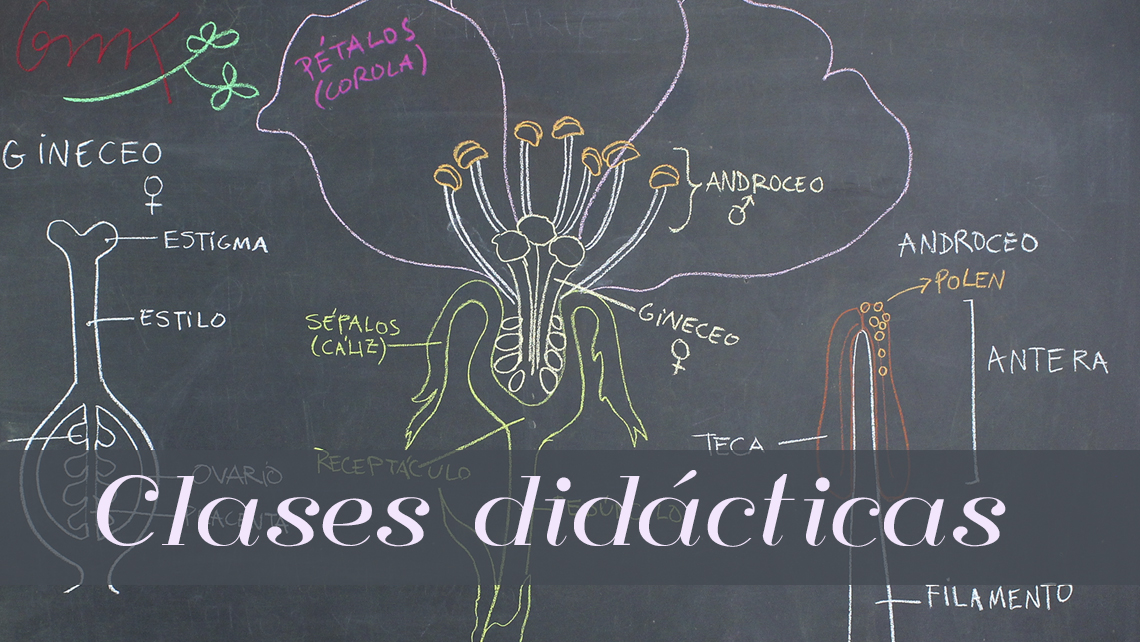 GMK
PÉTALOS
(COROLA)
GINECEO
♀
ESTIGMA
ESTILO
OVARIO
PLACENTA
ANDROCEO
♂
GINECEO
♀
SÉPALOS
(CÁLIZ)
RECEPTÁCULO
ANDROCEO
POLEN
ANTERA
TECA
FILAMENTO
Clases didácticas